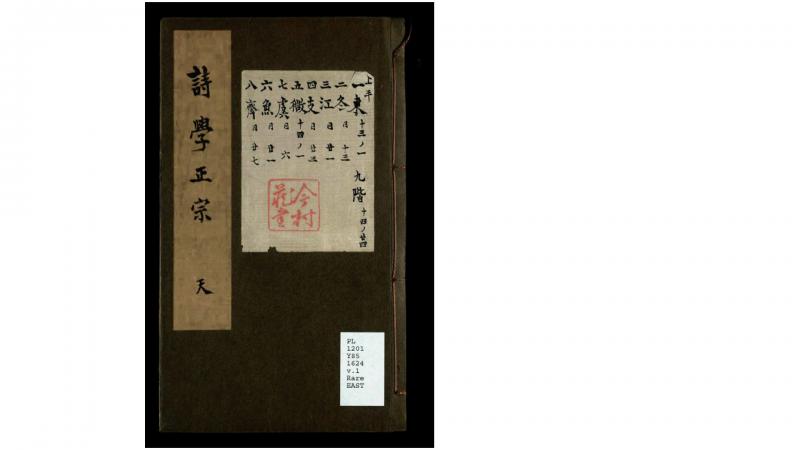 詩學正宗
天
上平
一東 十三ノ一
二冬 日 十三
三江 日 廿一
四支 日 廿三
五微 十四ノ一
七虞 日 六
六魚 日 廿一
八齊 日 廿七
九階 十四ノ廿四
冷村
藏書
PL
1201
Y85
1624
v.1
Rare
EAST